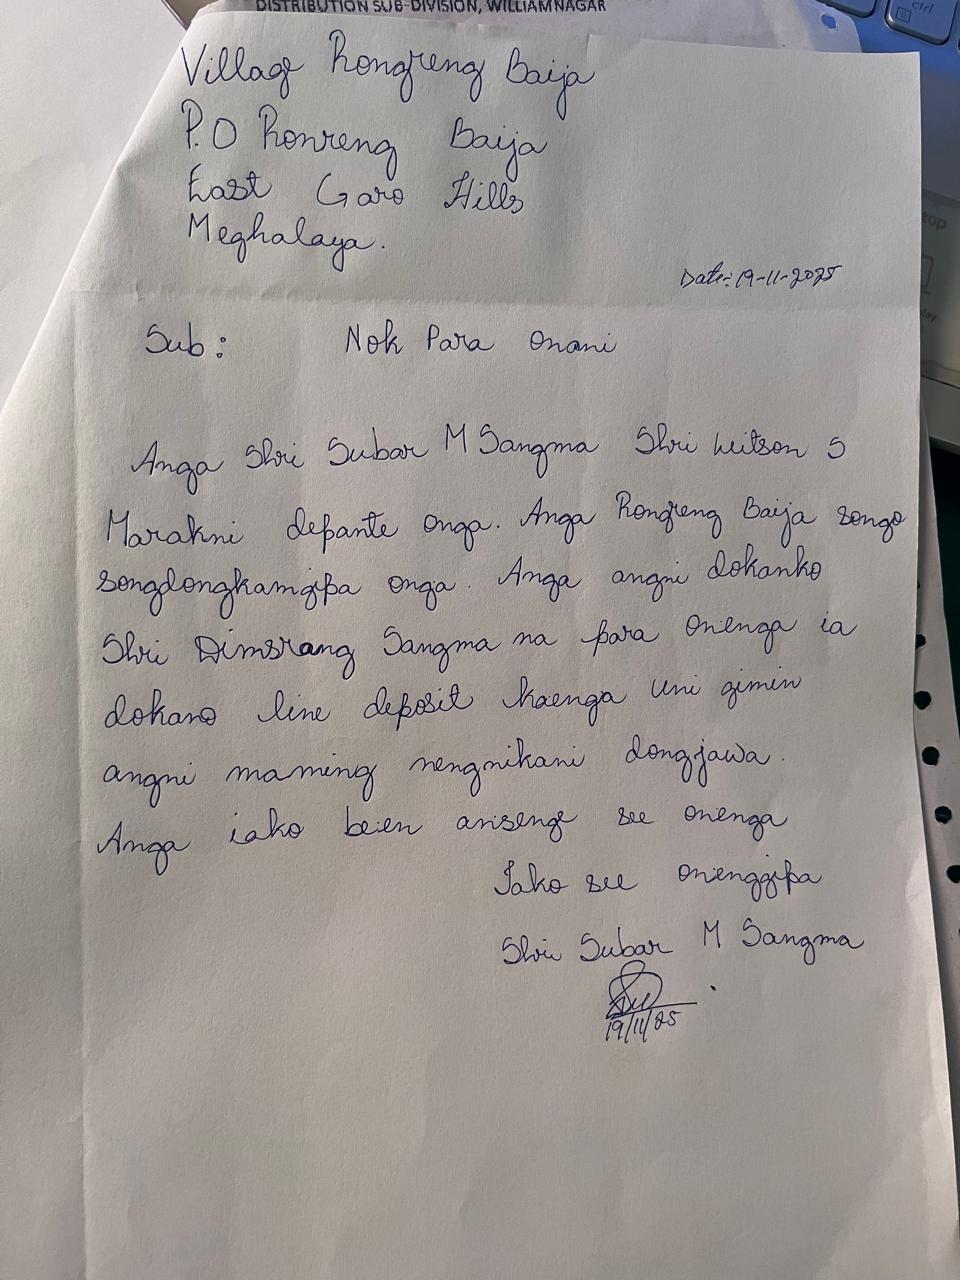 DISTRIBUTION SUB-DIVISION, WILLIAMNAGAR
ctrl
Village Rongreng Baija
P.O Ronreng Baija
East Garo Hills
Meghalaya.
Date: 19-11-2025
Sub: Nok Para Onani
Anga Shri Subar M Sangma Shri Witson S
Marakni depante onga. Anga Rongreng Baija songo
songdongkamgipa onga. Anga angni dokanko
Shri Dimsrang Sangma na para onenga ia
dokano line deposit kaenga uni gimin
angni maming nengnikani dongjawa.
Anga iako been anisenge see onenga
Iako see onenggipa
Shri Subar M Sangma
19/11/25